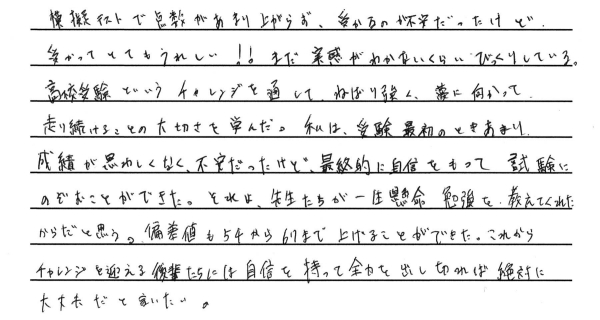 模擬テストで点数があまり上がらず、受かるのか不安だったけど、
受かってとてもうれしい!!まだ実感がわかないくらいびっくりしている。
高校受験というチャレンジを通して、ねばり強く、夢に向かって
走り続けることの大切さを学んだ。私は、受験最初のときあまり
成績が思わしくなく、不安だったけど、最終的に自信をもって試験に
のぞむことができた。それは、先生たちが一生懸命勉強を教えてくれた
からだと思う。偏差値も54から61まで上げることができた。これから
チャレンジを迎える後輩たちには自信を持って全力を出し切れば絶対に
大丈夫だと言いたい。